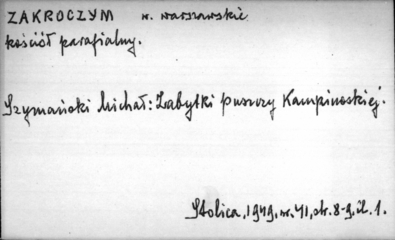 ZAKROCZYM w. warszawskie
kościół parafialny.
Szymański Michał: Zabytki puszczy Kampinoskiej.
Stolica, 1949, nr. 41, str. 8-9, il. 1.